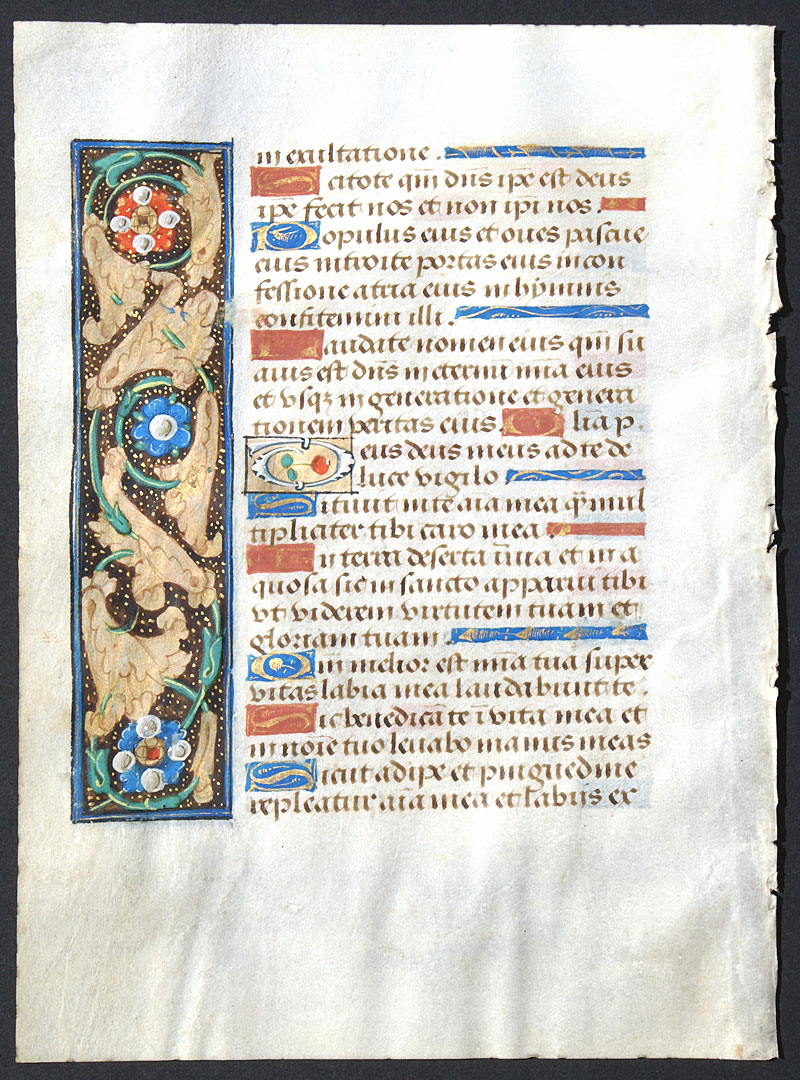 in exultatione.
Scitote qm̄ dn̄s ip̄e est deus
ip̄e fecit nos et non ip̄i nos.
Populus eius et oues pascue
eius introite portas eius in con
fessione atria eius in hymnis
confitemini illi.
Laudate nomen eius qm̄ su
auis est dn̄s in eternū mīa eius
et vsqz in generatione et genera
tionem veritas eius. Gl̄ia p.
Deus deus meus ad te de
luce vigilo
Sitiuit in te aīa mea q̄ mul
tipliciter tibi caro mea.
In terra deserta īuia et in a
quosa sic in sancto apparui tibi
vt viderem virtutem tuam et
gloriam tuam.
Qm̄ melior est mīa tua super
vitas labia mea laudabunt te.
Sic benedicā te ī vita mea et
in noīe tuo leuabo manus meas
Sicut adipe et pinguedine
repleatur aīa mea et labijs ex